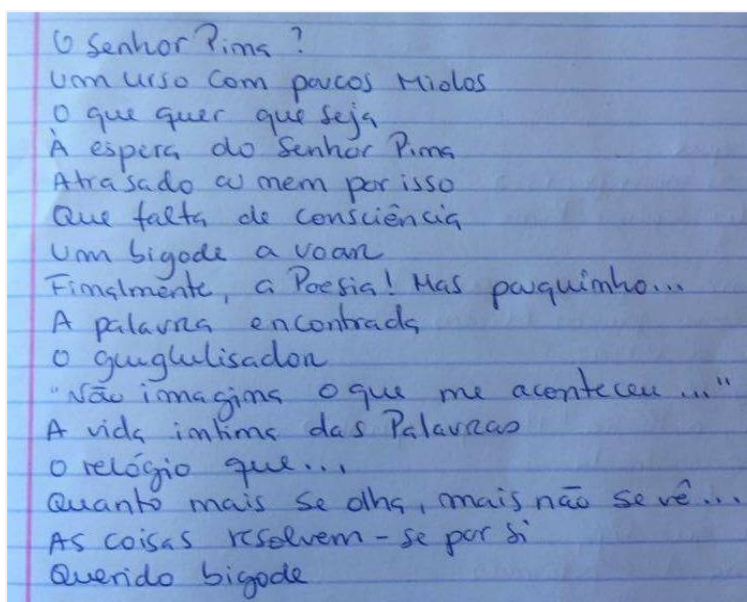 O Senhor Pina?
Um urso com poucos Miolos
O que quer que seja
À espera do Senhor Pina
Atrasado ou nem por isso
Que falta de consciência
Um bigode a voar
Finalmente, a Poesia! Mas pouquinho...
A palavra encontrada
O guuglulisador
"Não imagina o que me aconteceu..."
A vida íntima das Palavras
O relógio que...
Quanto mais se olha, mais não se vê...
As coisas resolvem-se por si
Querido bigode